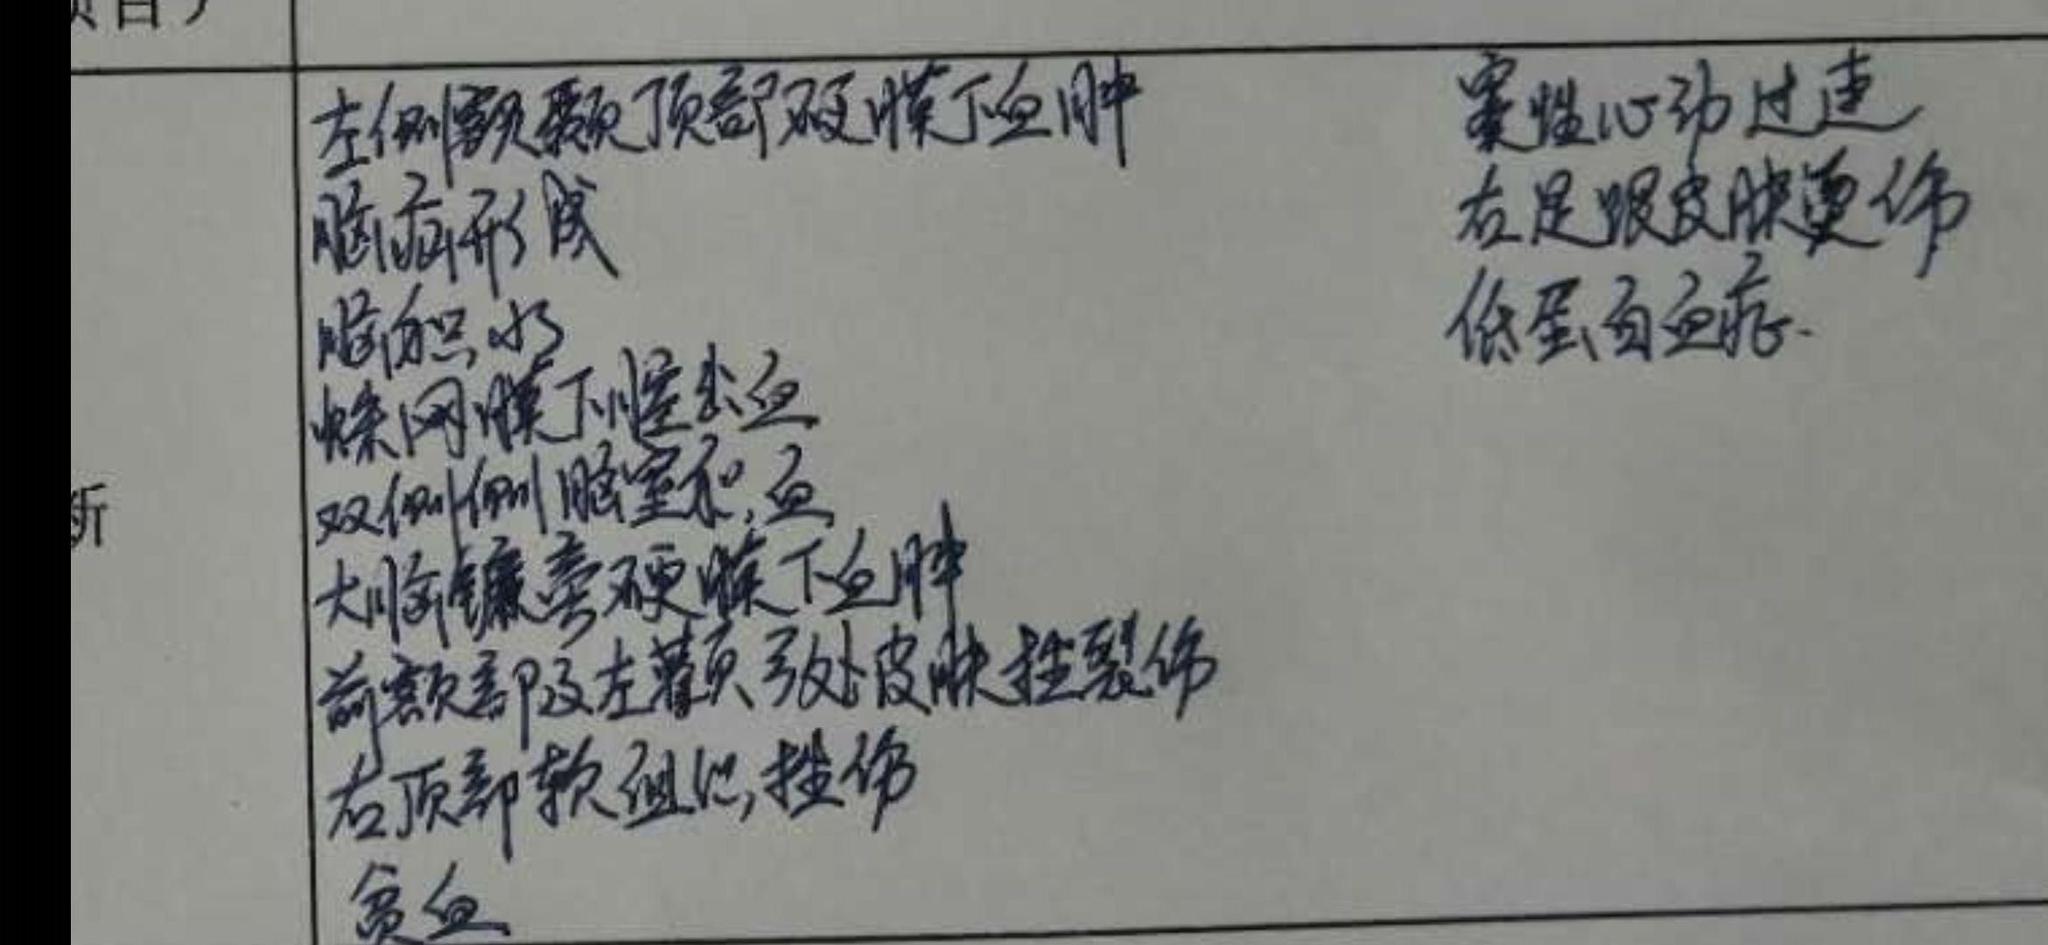 项目）
左侧额颞顶部硬膜下血肿
脑疝形成
脑积水
蛛网膜下腔出血
双侧侧脑室积血
大脑镰旁硬膜下血肿
前额部及左眉弓处皮肤挫裂伤
右顶部软组织挫伤
贫血
窦性心动过速
右足跟皮肤烫伤
低蛋白血症.
断